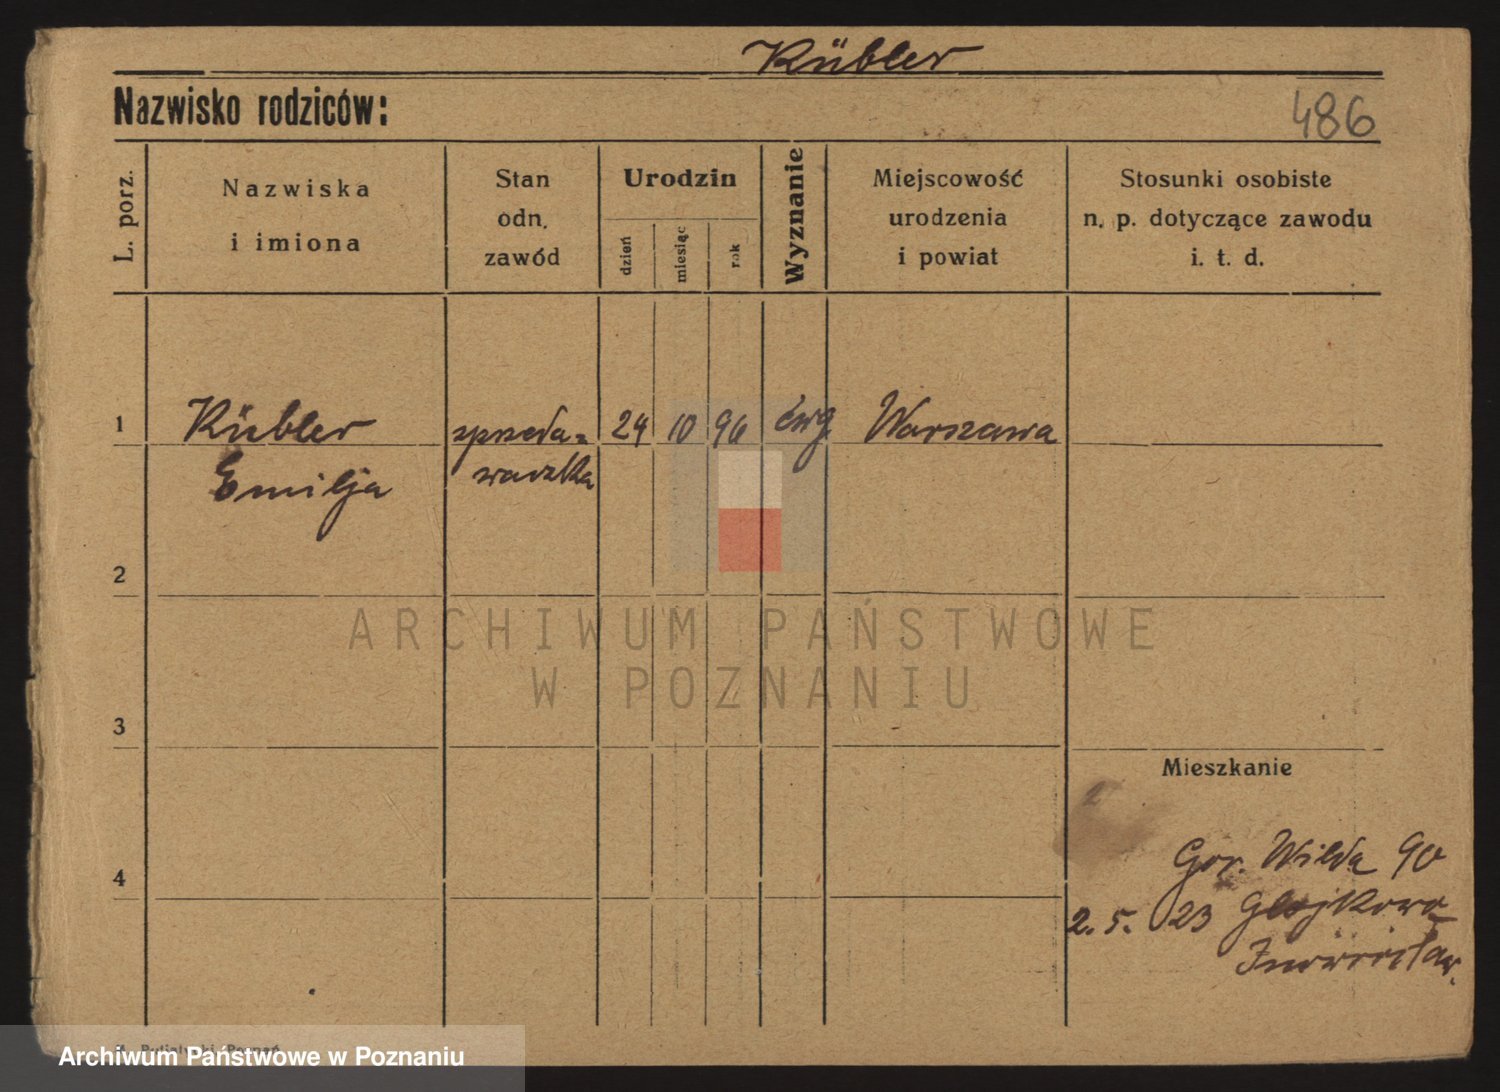 Kübler
Nazwisko rodziców:
486
L. porz.
Nazwiska
i imiona
Stan
odn.
zawód
Urodzin
dzień
miesiąc
rok
Wyznanie
Miejscowość
urodzenia
i powiat
Stosunki osobiste
n. p. dotyczące zawodu
i. t. d.
1
Kübler
Emilja
sprzeda-
waczka
24
10
96
ewg
Warszawa
2
ARCHIWUM PAŃSTWOWE
W POZNANIU
3
Mieszkanie
4
Gor. Wilda 90
2. 5. 23
Archiwum Państwowe w Poznaniu